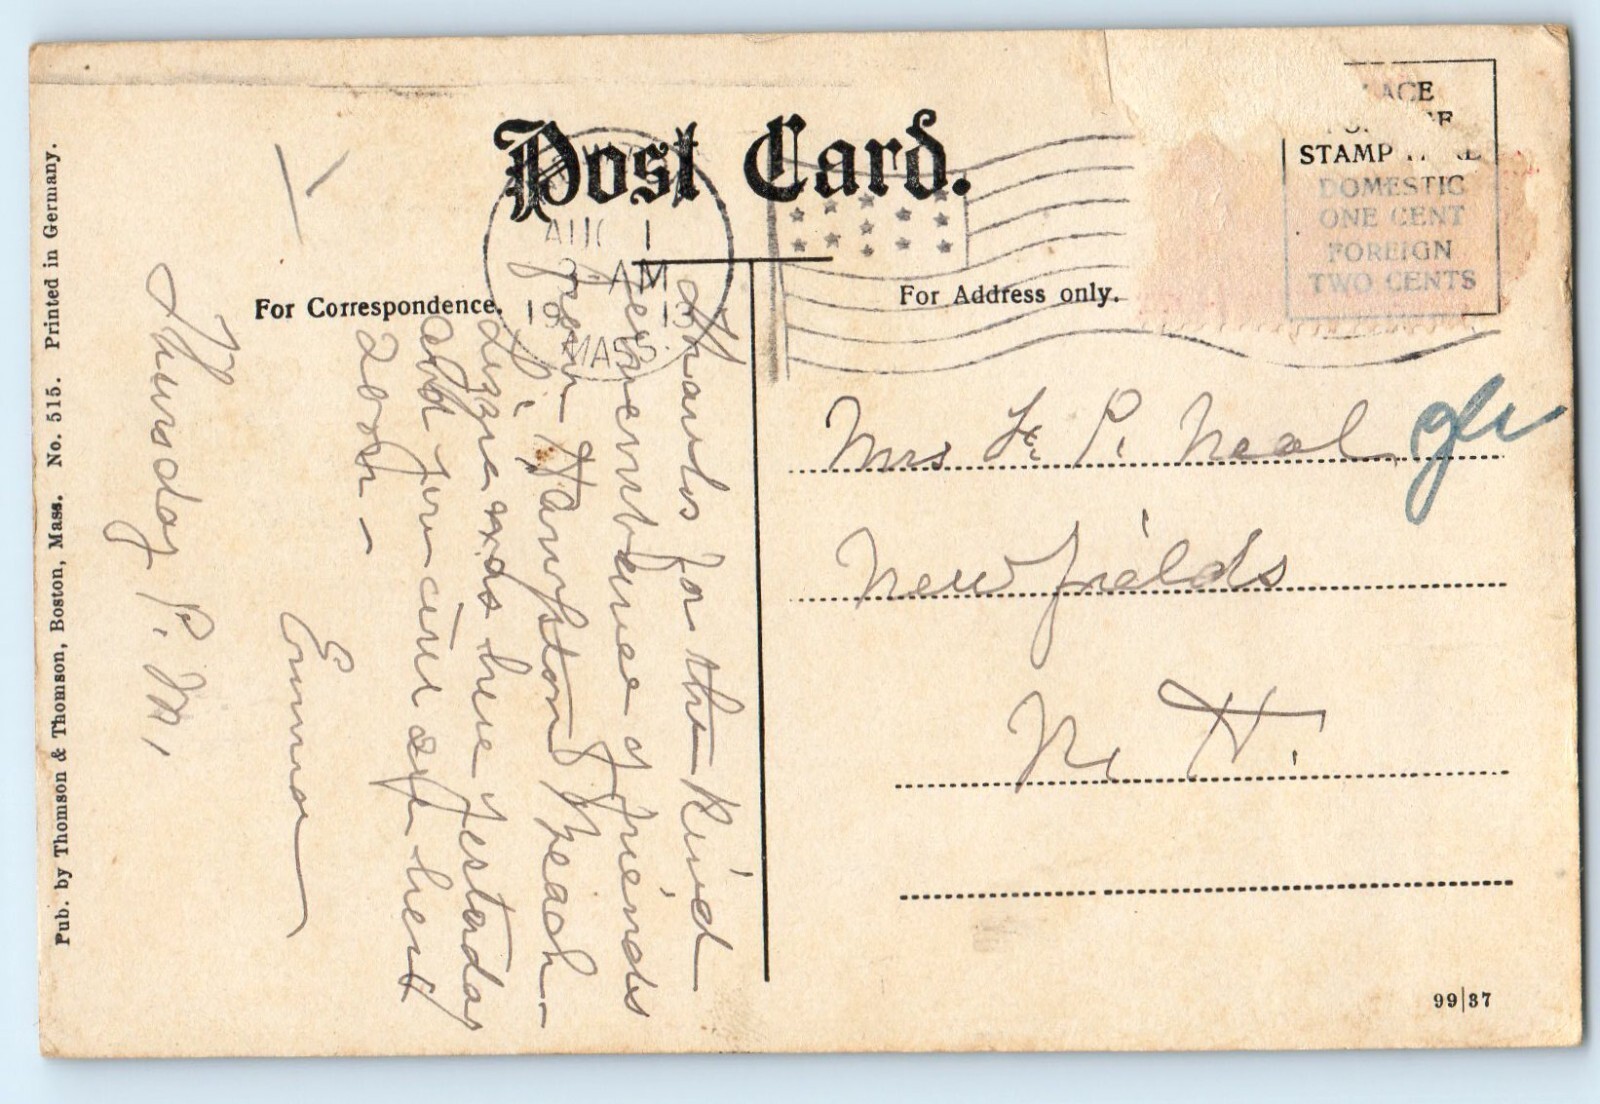 Post Card.
AUG 1
AM
13
MASS.
ACE
STAMP
DOMESTIC
ONE CENT
FOREIGN
TWO CENTS
For Correspondence.
For Address only.
Thanks for the kind
remembrance of friends
from Hampton Beach -
Lizzie was here yesterday
and you
soon -
Emma
Thursday P. M.
Mrs P. Neal
Newfields
N. H.
Pub. by Thomson & Thomson, Boston, Mass. No. 515. Printed in Germany.
99|37